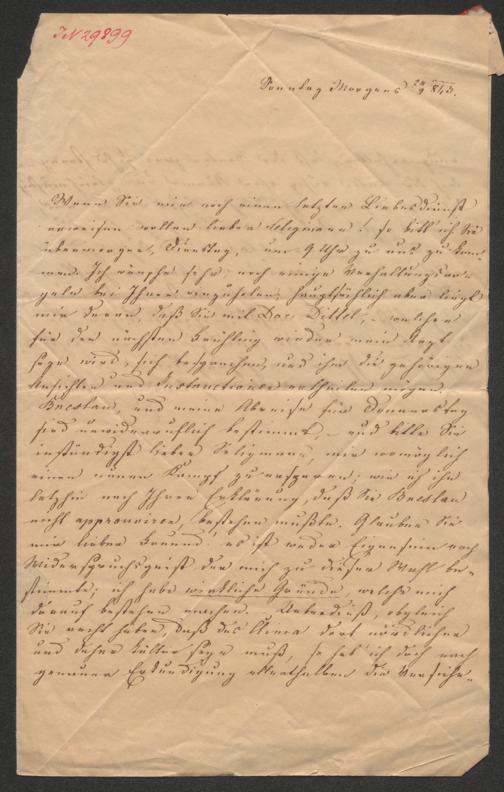 IN 29899
Sonntag Morgens 24/9 843.
Wenn Sie mir noch einen letzten Liebesdienst
erweisen wollen lieber Seligmann! so bitt' ich Sie
übermorgen, Dienstag, um 9 Uhr zu uns zu kom-
men. Ich wünsche sehr, noch einige Verhaltungsre-
geln bei Ihnen einzuholen, hauptsächlich aber liegt
mir daran, daß Sie mit Doc Dittel, – welcher
für den nächsten Frühling wieder mein Arzt
seyn wird, sich besprechen, und ihm die gehörigen
Ansichten und Instructionen ertheilen mögen
Breslau, und meine Abreise für Donnerstag
sind unwiderruflich bestimmt, – und bitte Sie
inständigst lieber Seligmann, mir womöglich
einen neuen Kampf zu ersparen; wie ich ihn
letzhin nach Ihrer Erklärung, daß Sie Breslau
nicht approuviren, bestehen mußte. Glauben Sie
mir lieber Freund! es ist weder Eigensinn noch
Widerspruchsgeist der mich zu dieser Wahl be-
stimmte; ich habe wirkliche Gründe, welche mich
darauf bestehen machen. Ueberdieß, obgleich
Sie recht haben, daß das Clima dort nördlicher
und daher kälter seyn muß, so hab' ich doch nach
genauer Erkundigung allenthalben die Versiche-